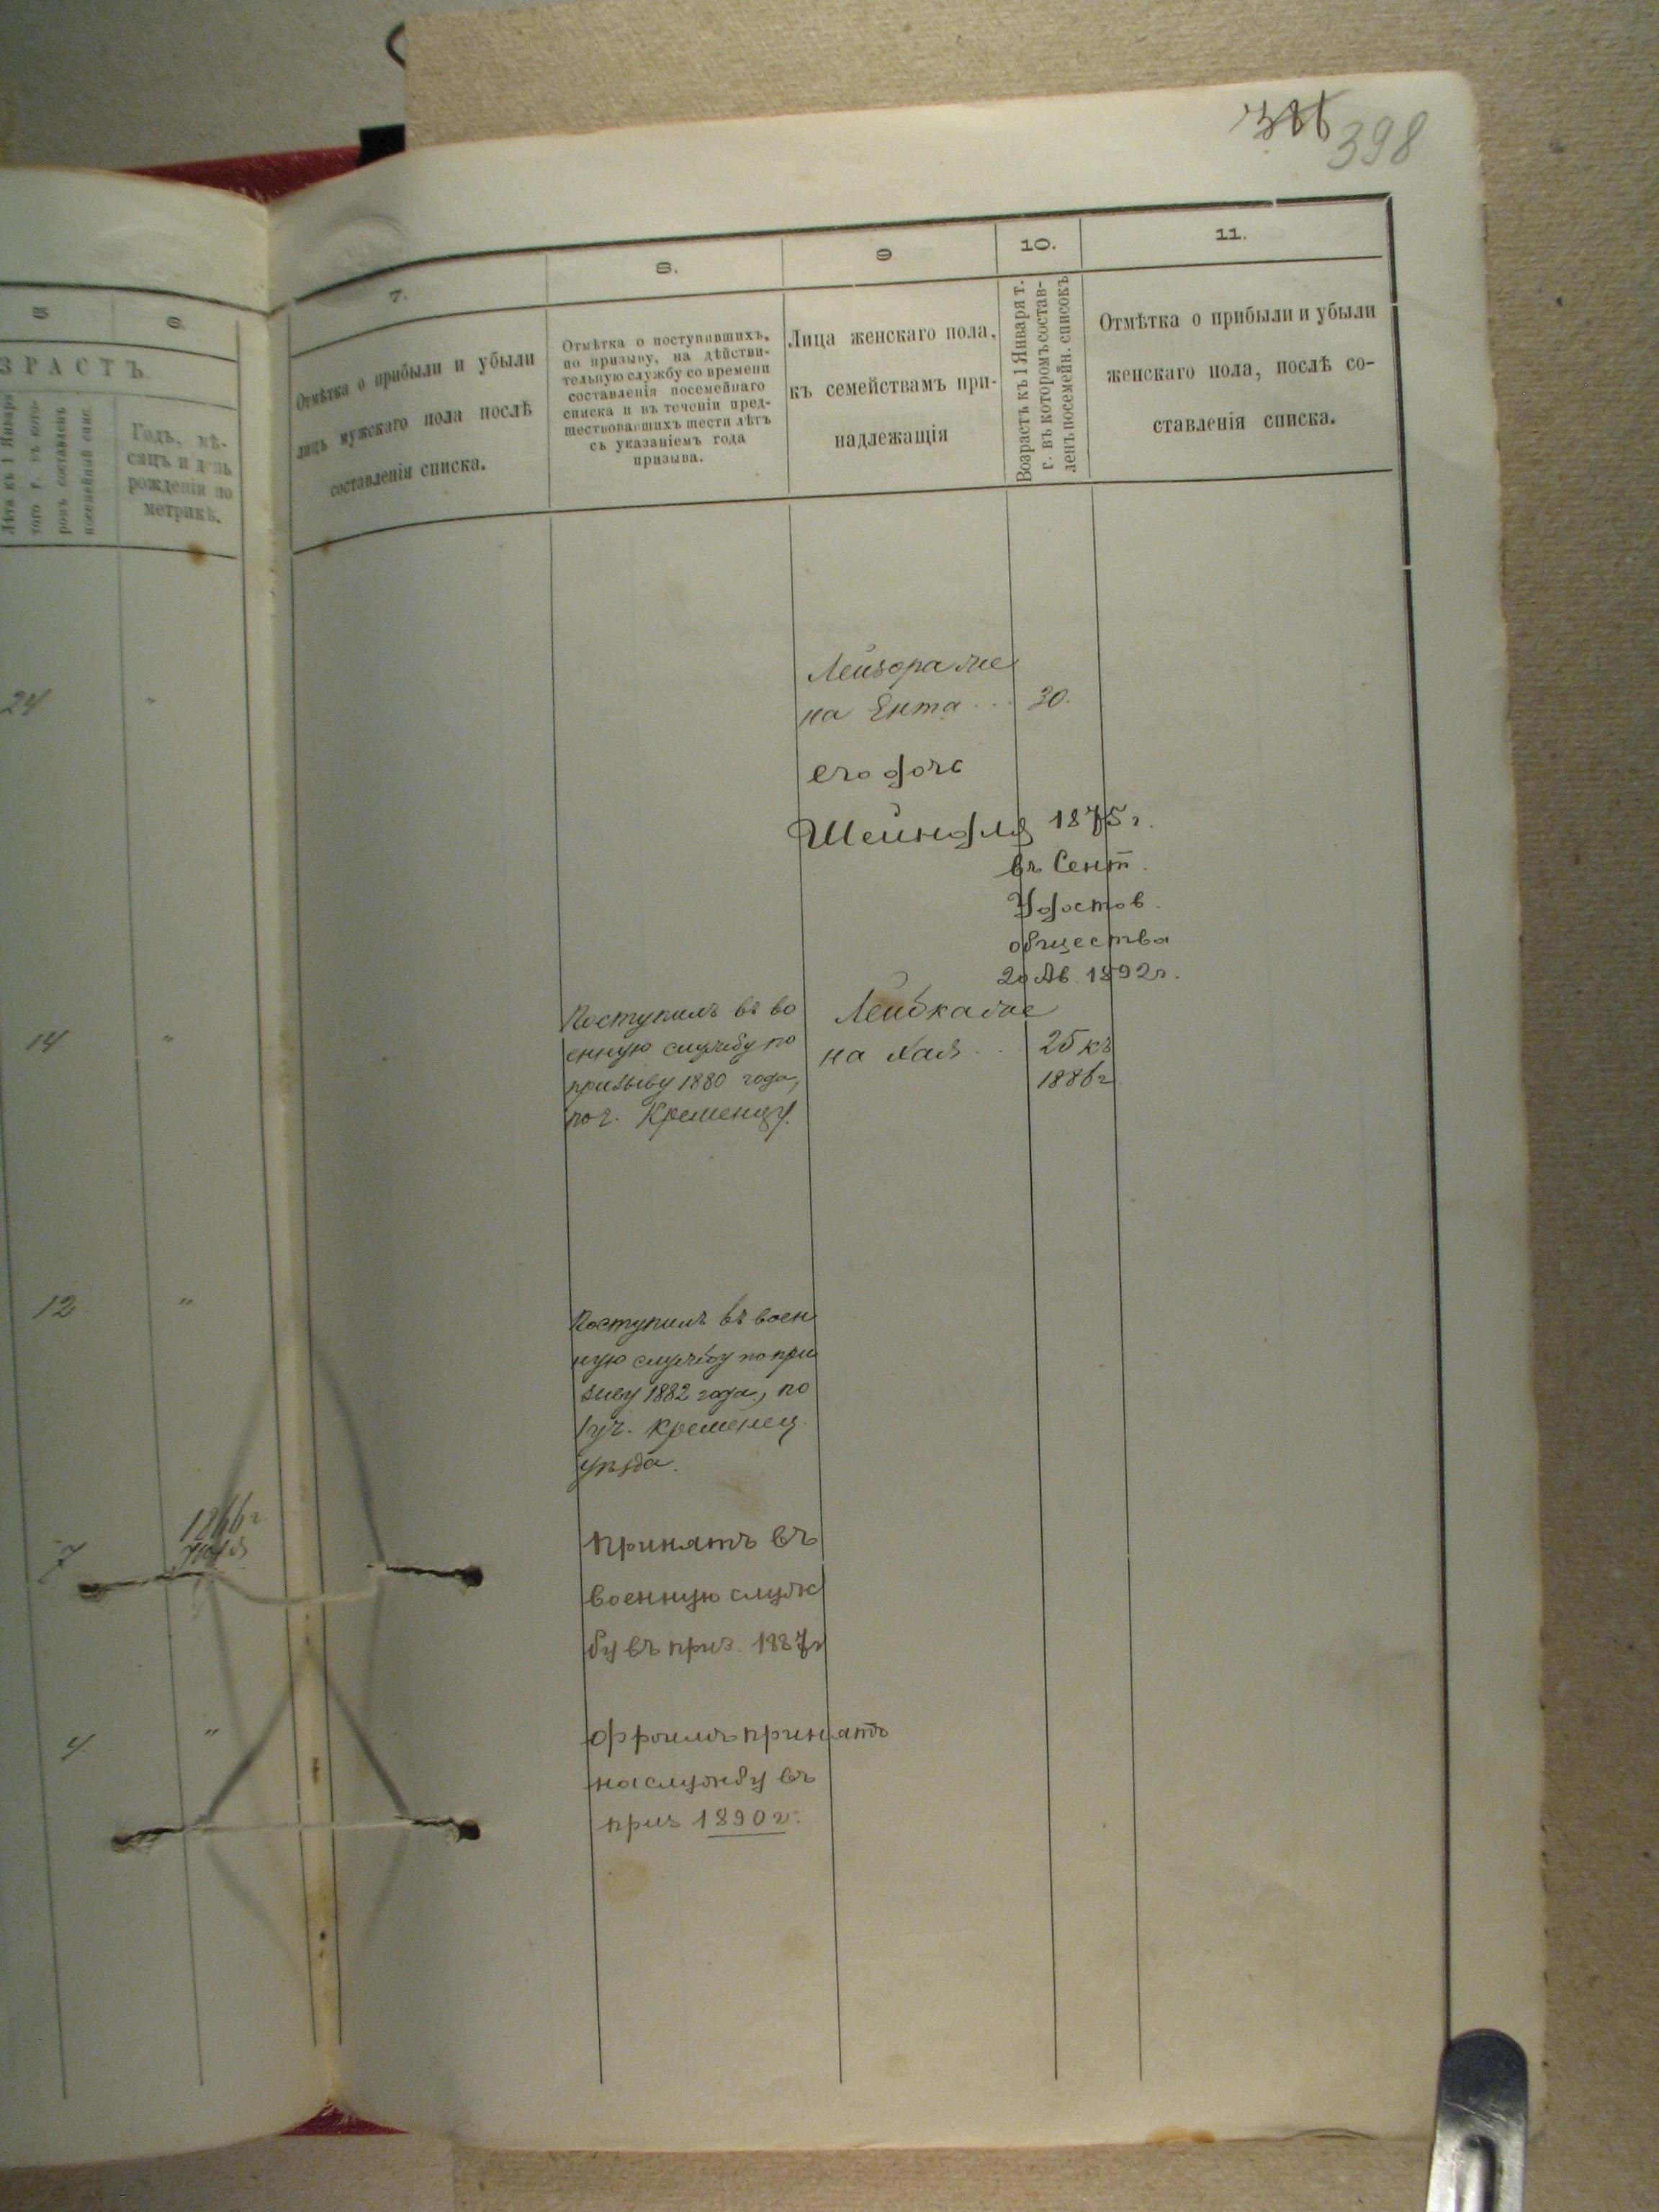 398
5
6
7.
8.
9
10.
11.
ЗРАСТЪ
Лѣта къ 1 Января
того г. въ кото-
ромъ составленъ
посемейный спис.
Годъ, мѣ-
сяцъ и день
рожденія по
метрикѣ.
Отмѣтка о прибыли и убыли
лицъ мужскаго пола послѣ
составленія списка.
Отмѣтка о поступившихъ,
по призыву, на дѣйстви-
тельную службу со времени
составленія посемейнаго
списка и въ теченіи пред-
шествовавшихъ шести лѣтъ
съ указаніемъ года
призыва.
Лица женскаго пола,
къ семействамъ при-
надлежащія
Возрастъ къ 1 Января т.
г. въ которомъ состав-
ленъ посемейн. списокъ
Отмѣтка о прибыли и убыли
женскаго пола, послѣ со-
ставленія списка.
24 "
Лейзора же
на Ента ... 30.
его дочь
Шейндля 1875 г.
въ Сент.
Удостов.
общества
20 Ав. 1892 г.
14 "
Поступилъ въ во
енную службу по
призыву 1880 года,
по г. Кременцу.
Лейбка же
на Хая .. 25 къ
1886 г
12 "
Поступилъ въ воен
ную службу по при
зыву 1882 года, по
1 уч. Кременец.
уѣзда.
7
1866 г
Принятъ въ
военную служ
бу въ приз. 1887 г
4 "
Фроимъ принятъ
на службу въ
приз 1890 г.